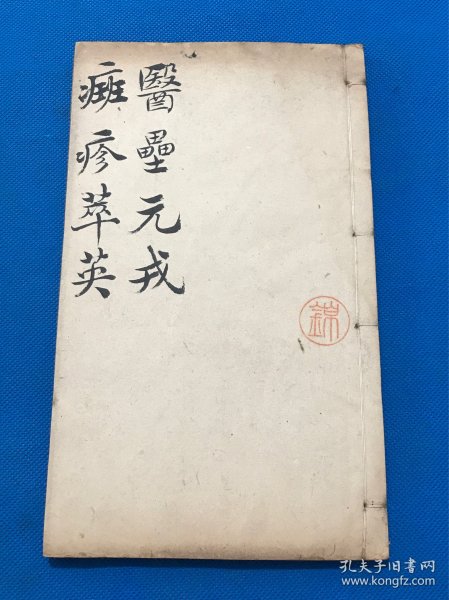 醫壘元戎
癍疹萃英
錦
孔夫子旧書网
www.kongfz.com